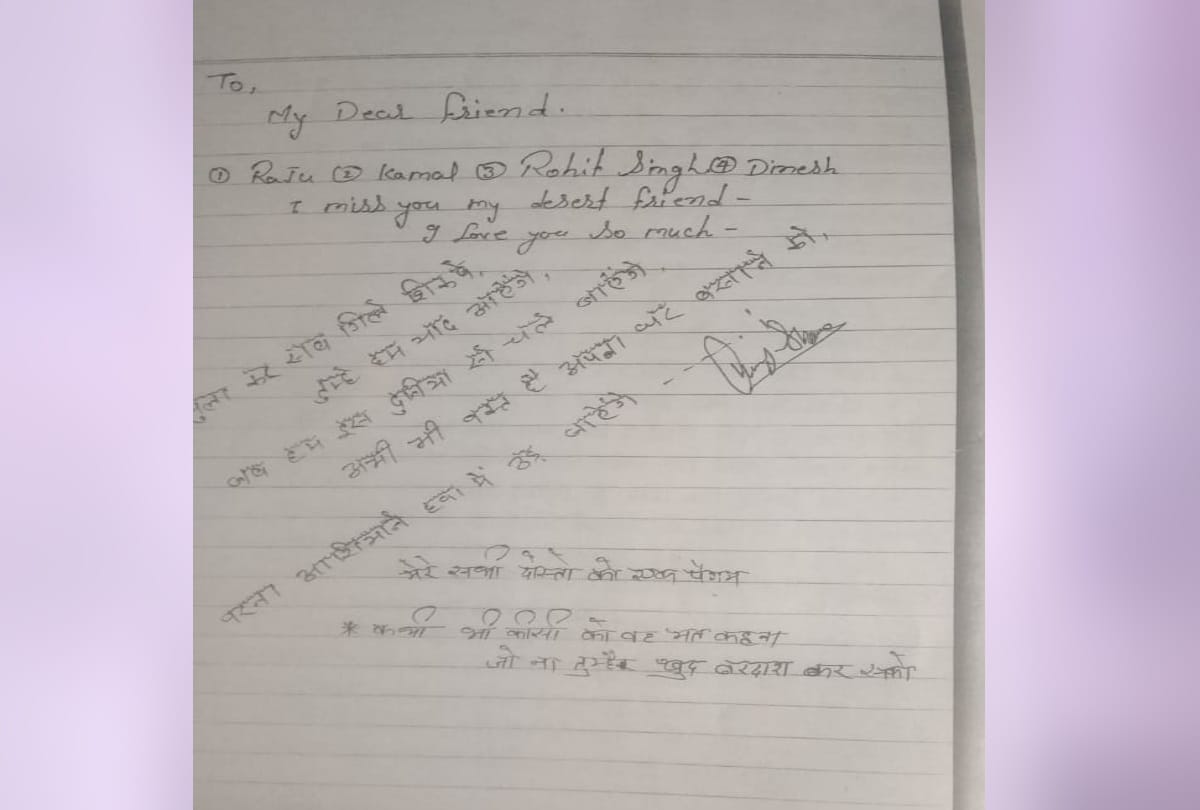 To,
My Dear friend.
① Raju ② Kamal ③ Rohit Singh ④ Dinesh
I miss you my desert friend -
I Love you so much -
भुला कर सब गिले शिकवे,
तुम्हे हम याद आऐंगे,
जब हम इस दुनिया से चले जाऐंगे.
अभी भी वक्त है अपना घर बसाने को,
वरना आशियाने हवा में उड़ जाऐंगे --
मेरे सभी दोस्तो को एक पेगाम
* कभी भी कीसी को वह मत कहना
जो ना तुम्हैर खुद बरदाश कर सको